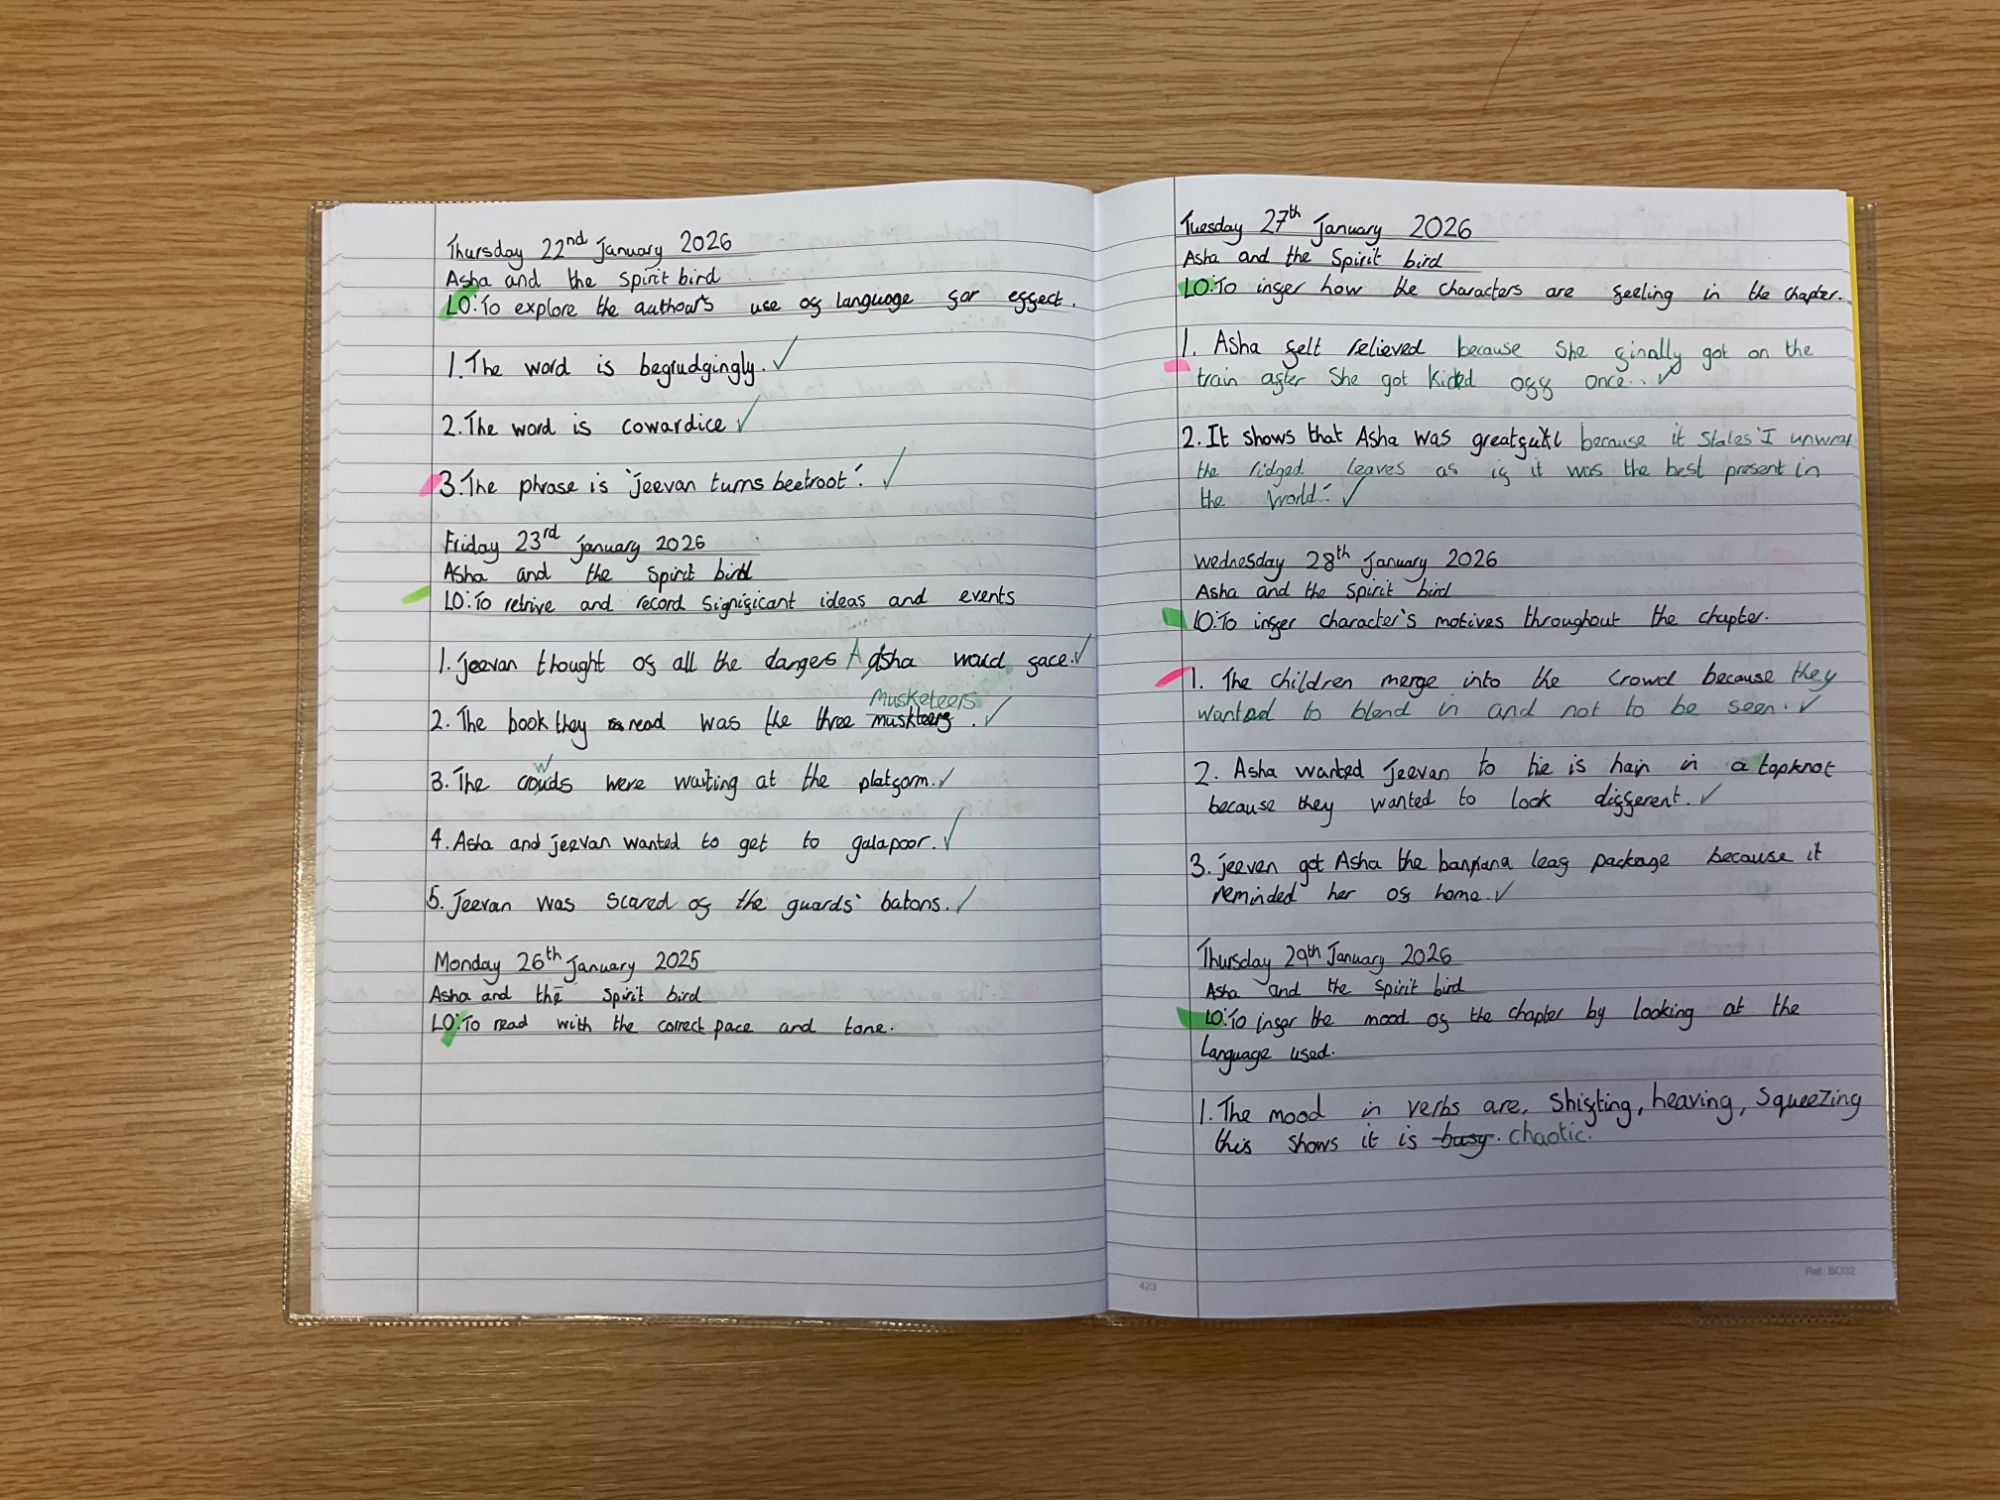 Thursday 22nd January 2026
Asha and the Spirit bird
LO:To explore the author's use of language for effect.
1. The word is begrudgingly. ✓
2. The word is cowardice ✓
3. The phrase is 'jeevan turns beetroot'. ✓
Friday 23rd January 2026
Asha and the Spirit bird
LO:To retrive and record significant ideas and events
1. Jeevan thought of all the dangers Asha would face. ✓
Musketeers
2. The book they read was the three muskteers. ✓
w
3. The couds were waiting at the platform. ✓
4. Asha and jeevan wanted to get to galapoor. ✓
5. Jeevan was scared of the guards' batons. ✓
Monday 26th January 2025
Asha and the Spirit bird
LO:To read with the correct pace and tone.
Tuesday 27th January 2026
Asha and the Spirit bird
LO:To infer how the characters are feeling in the chapter.
1. Asha felt relieved because She finally got on the
train after She got kicked off once. ✓
2. It shows that Asha was greatful because it States 'I unwrap
the ridged leaves as if it was the best present in
the World'. ✓
Wednesday 28th January 2026
Asha and the Spirit bird
LO:To infer character's motives throughout the chapter.
1. The children merge into the crowd because they
wanted to blend in and not to be seen. ✓
2. Asha wanted Jeevan to tie is hair in a topknot
because they wanted to look different. ✓
3. jeeven got Asha the banana leaf package because it
reminded her of home. ✓
Thursday 29th January 2026
Asha and the Spirit bird
LO:To infer the mood of the chapter by looking at the
language used.
1. The mood in verbs are, Shifting, heaving, Squeezing
this shows it is busy. chaotic.
423
Ref: BO32